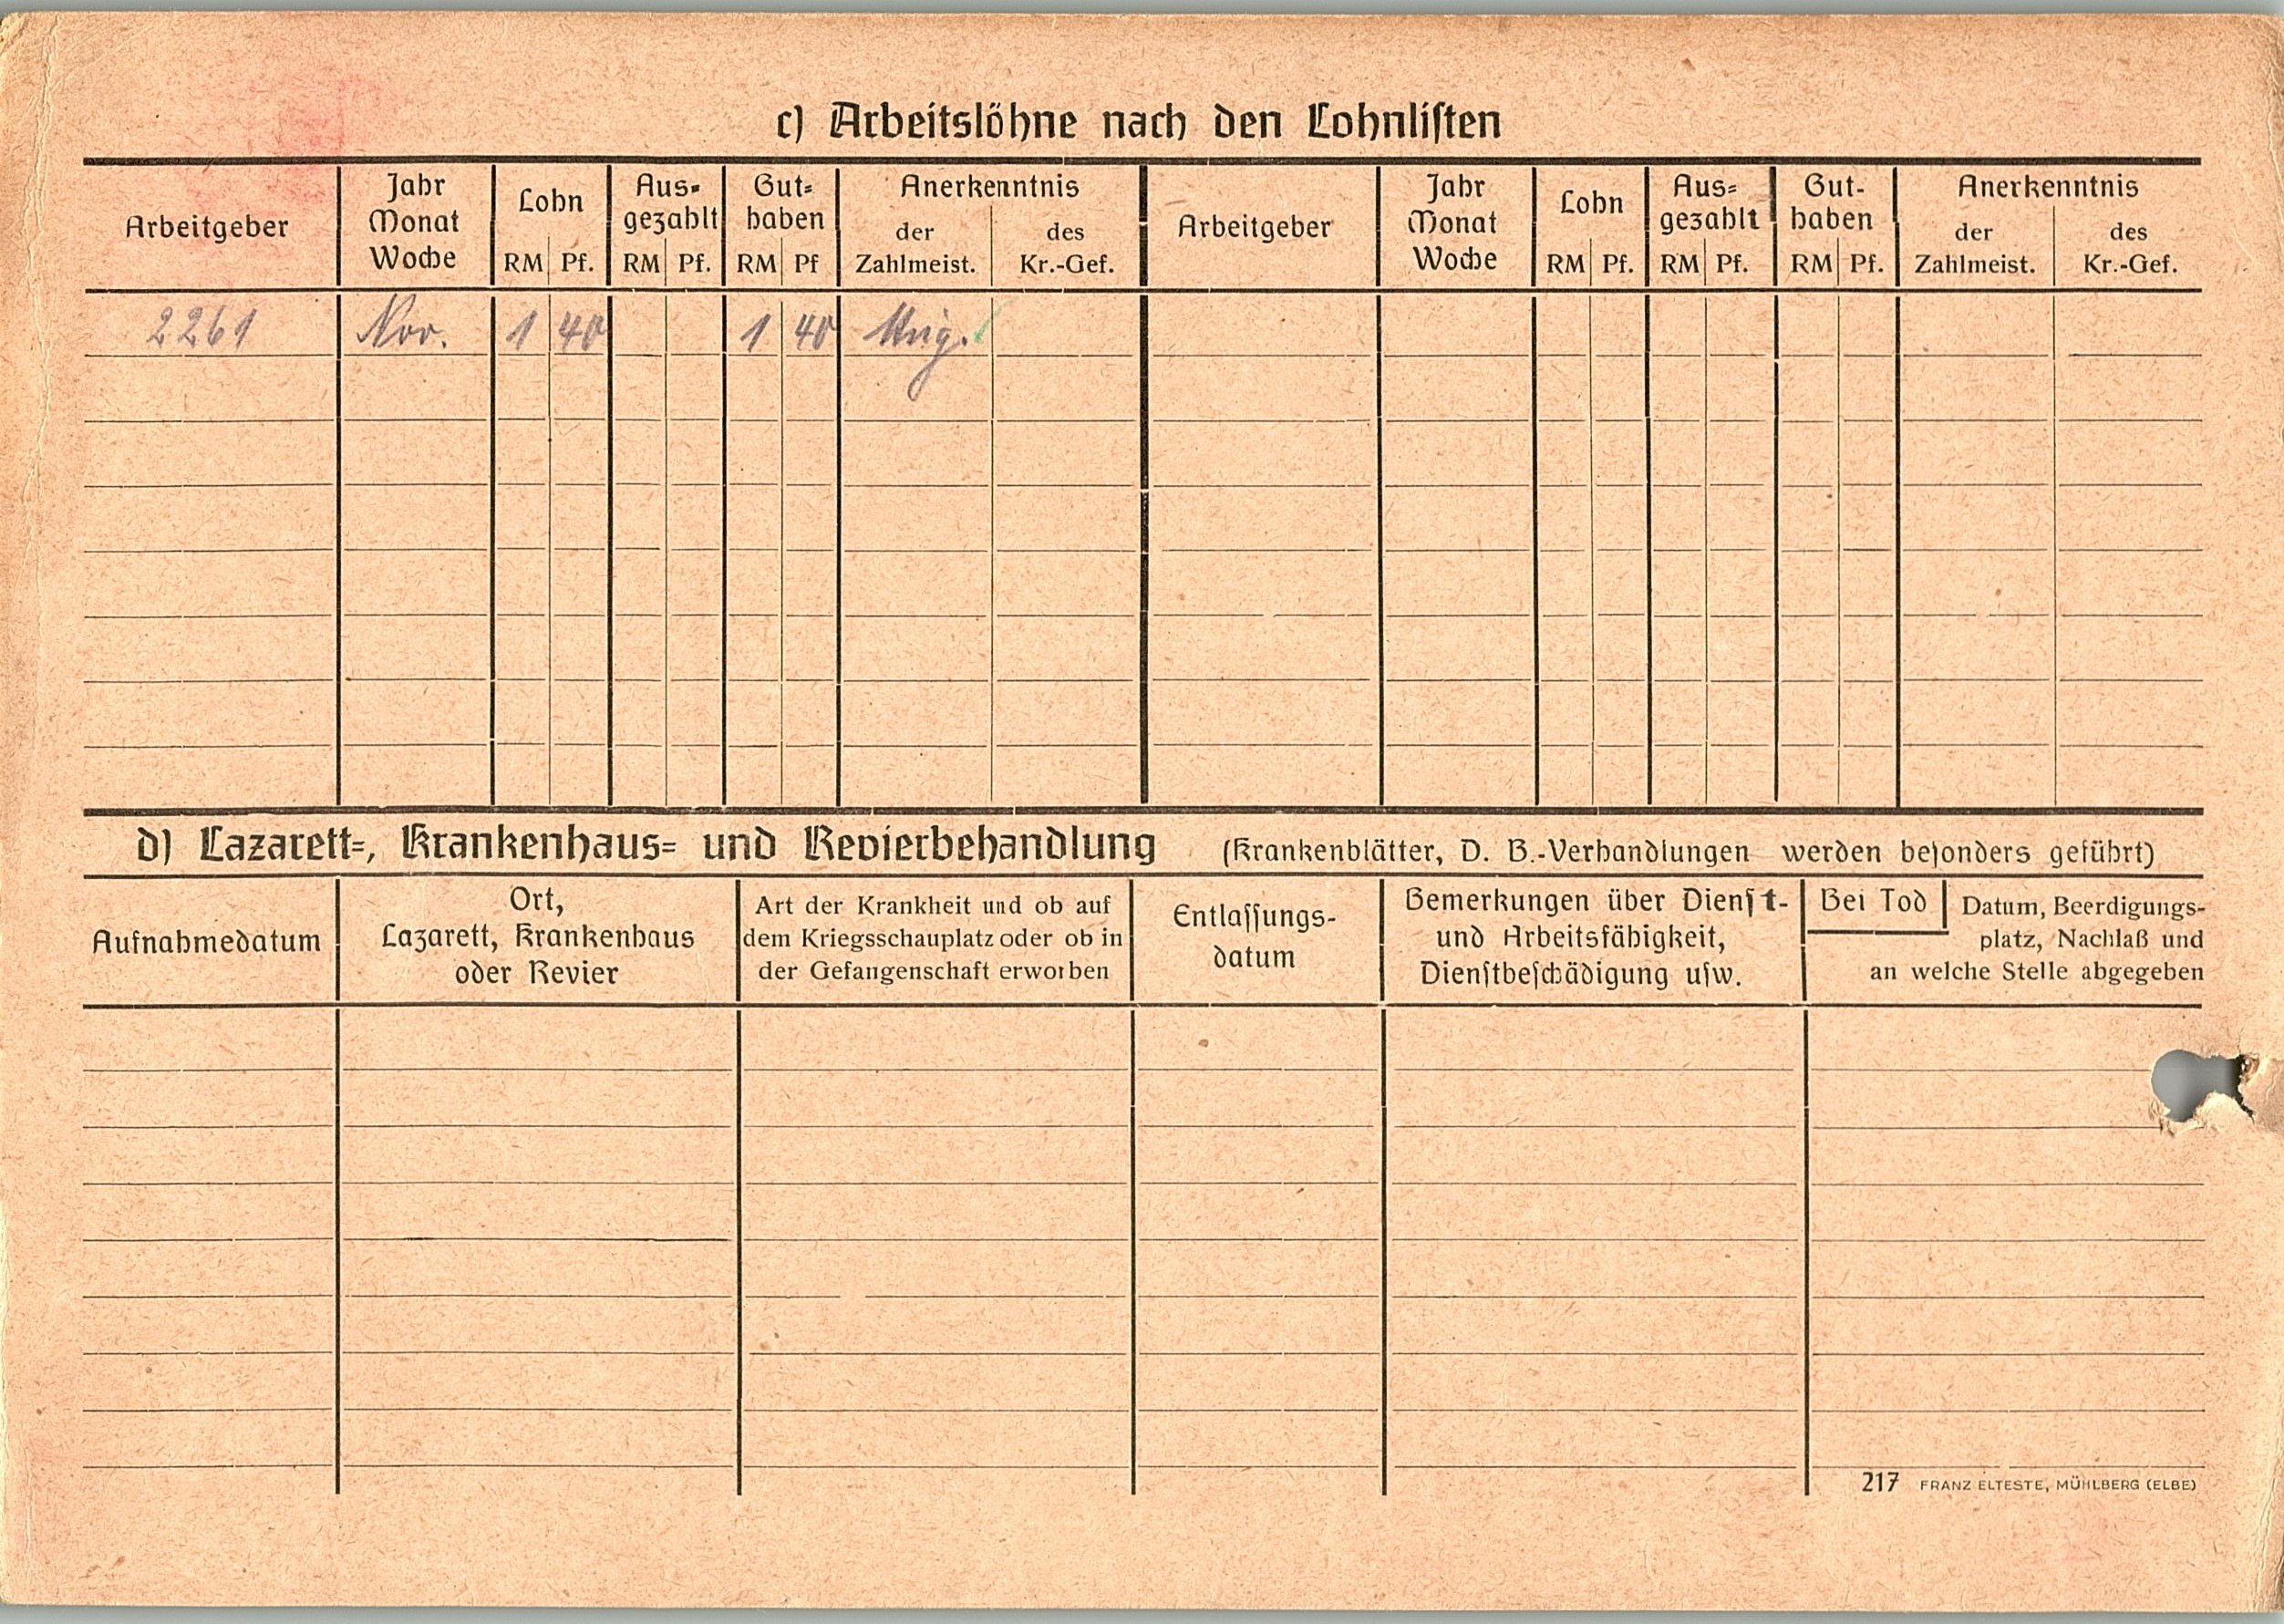 c) Arbeitslöhne nach den Lohnlisten
Arbeitgeber
Jahr
Monat
Woche
Lohn
RM Pf.
Aus-
gezahlt
RM Pf.
Gut-
haben
RM Pf
Anerkenntnis
der
Zahlmeist.
des
Kr.-Gef.
Arbeitgeber
Jahr
Monat
Woche
Lohn
RM Pf.
Aus-
gezahlt
RM Pf.
Gut-
haben
RM Pf.
Anerkenntnis
der
Zahlmeist.
des
Kr.-Gef.
2261 Nov. 1 40 1 40
d) Lazarett-, Krankenhaus- und Revierbehandlung (Krankenblätter, D. B.-Verhandlungen werden besonders geführt)
Aufnahmedatum
Ort,
Lazarett, Krankenhaus
oder Revier
Art der Krankheit und ob auf
dem Kriegsschauplatz oder ob in
der Gefangenschaft erworben
Entlassungs-
datum
Bemerkungen über Dienst-
und Arbeitsfähigkeit,
Dienstbeschädigung usw.
Bei Tod
Datum, Beerdigungs-
platz, Nachlaß und
an welche Stelle abgegeben
217 FRANZ ELTESTE, MÜHLBERG (ELBE)